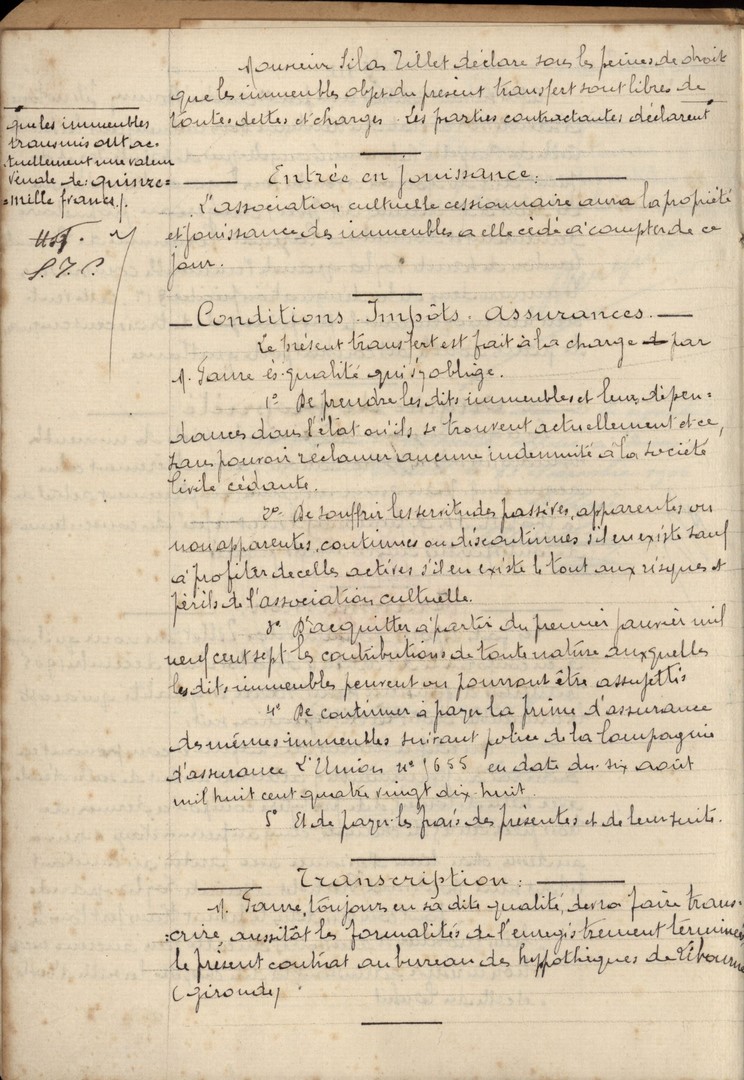 Monsieur Silas Tillet déclare sous les peines de droit
que les immeubles objet du présent transfert sont libres de
toutes dettes et charges. Les parties contractantes déclarent
que les immeubles
transmis ont ac-
tuellement une valeur
vénale de: quinze=
=mille francs./.
S. T. C.
Entrée en jouissance:
L'association cultuelle cessionnaire aura la propriété
et jouissance des immeubles a elle cédé à compter de ce
jour.
Conditions. Impôts. Assurances.
Le présent transfert est fait à la charge par
M. Faure ès-qualité qui s'y oblige.
1° De prendre les dits immeubles et leurs dépen=
dances dans l'état où ils se trouvent actuellement et ce,
sans pouvoir réclamer aucune indemnité à la société
civile cédante.
2° De souffrir les servitudes passives, apparentes ou
non apparentes, continues ou discontinues s'il en existe sauf
à profiter de celles actives s'il en existe le tout aux risques et
périls de l'association cultuelle.
3° D'acquitter à partir du premier janvier mil
neuf cent sept les contributions de toute nature auxquelles
les dits immeubles peuvent ou pourront être assujettis
4° De continuer à payer la prime d'assurance
des mêmes immeubles suivant police de la Compagnie
d'assurance L'Union n° 1655 en date du six août
mil huit cent quatre vingt dix-huit.
5° Et de payer les frais des présentes et de leur suite.
Transcription:
M. Faure, toujours en sa dite qualité, devra faire trans=
=crire, aussitôt les formalités de l'enregistrement terminées
le présent contrat au bureau des hypothèques de Libourne
(Gironde)